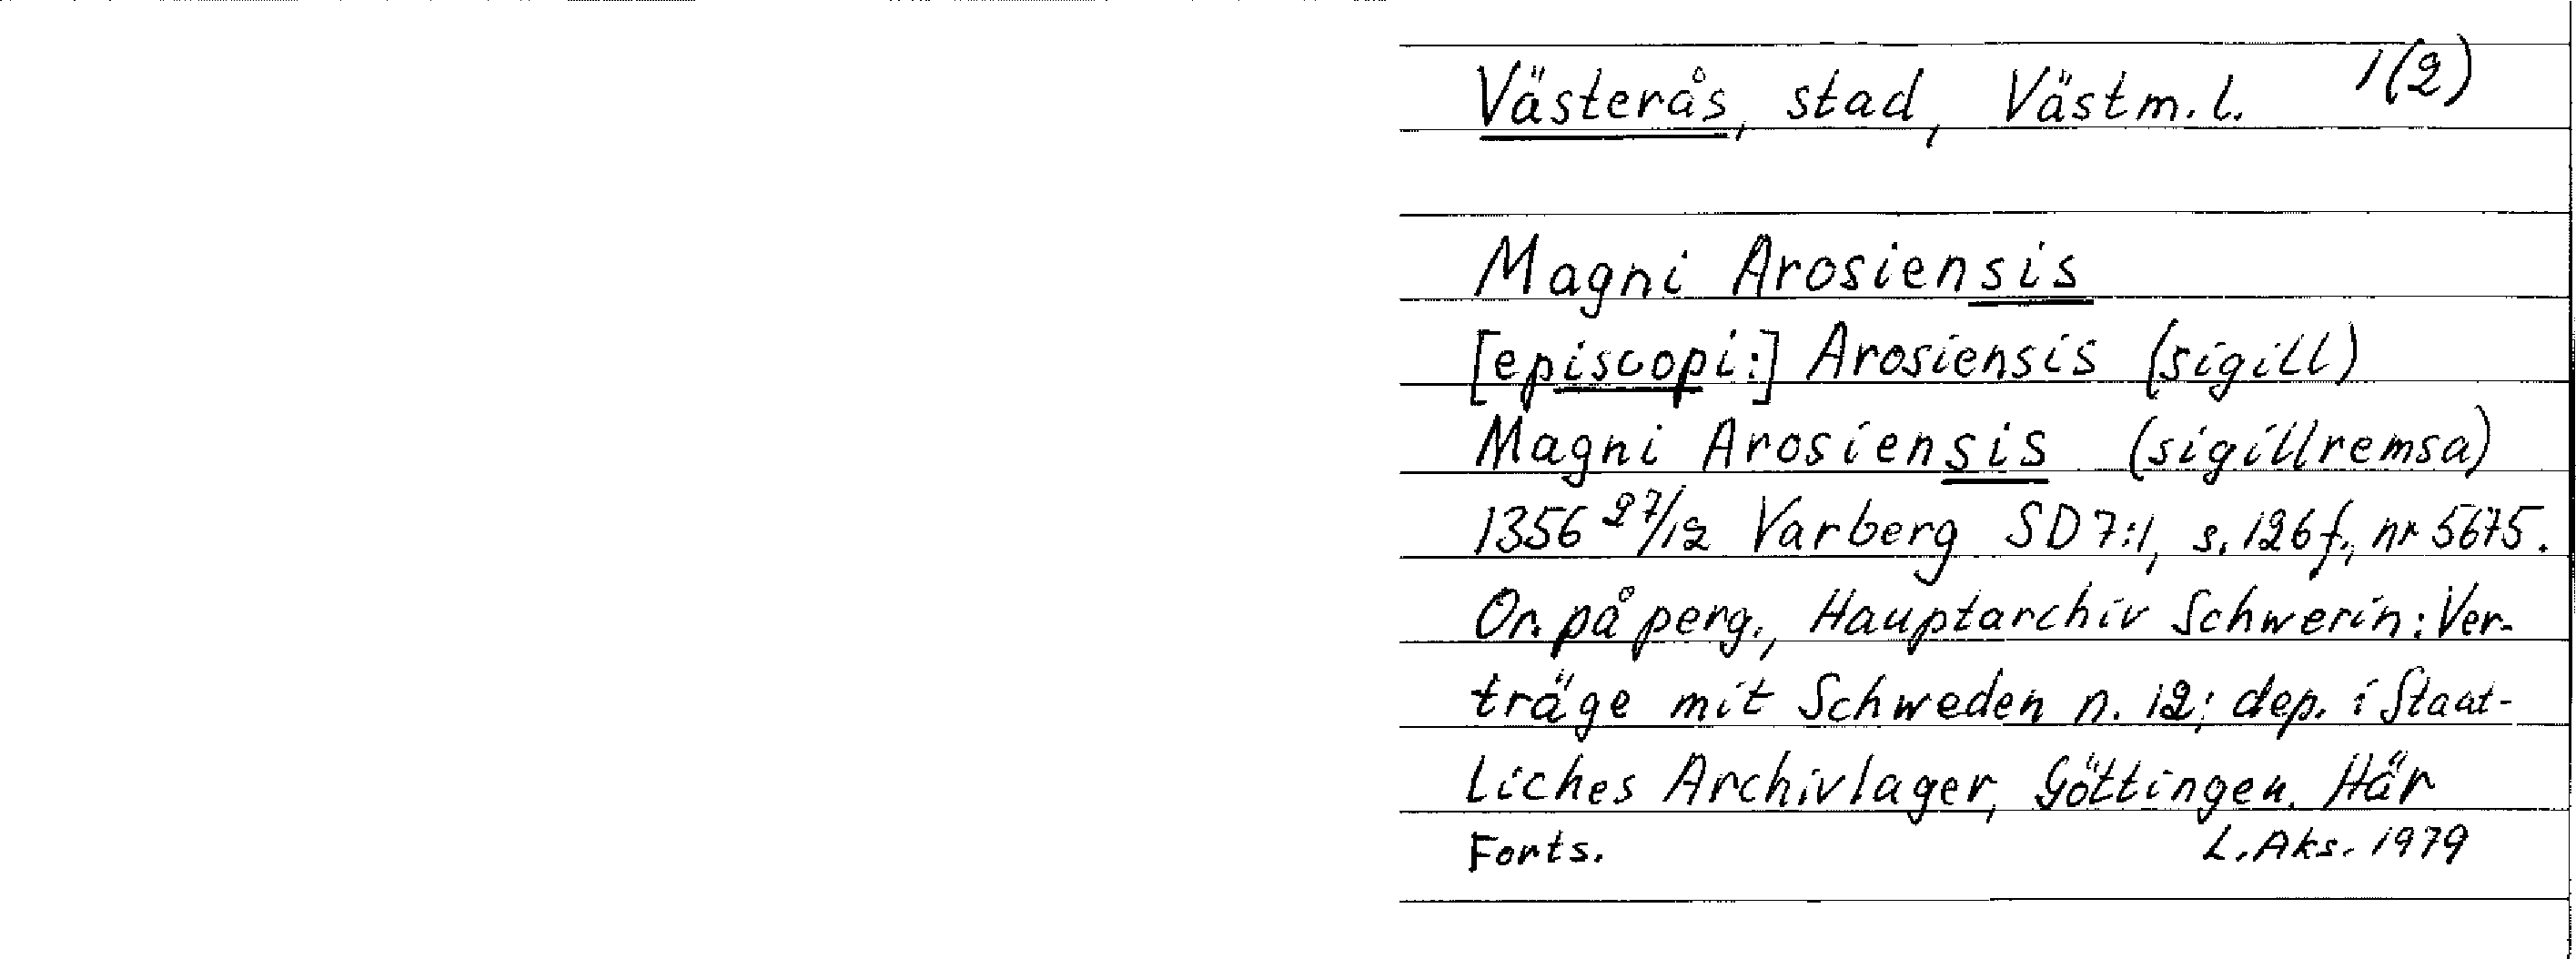 Västerås, stad, Västm. l. 1(2)
Magni Arosiensis
[episcopi:] Arosiensis (sigill)
Magni Arosiensis (sigillremsa)
1356 27/12 Varberg SD 7:1, s. 126 f., nr 5675.
Or. på perg., Hauptarchiv Schwerin: Ver-
träge mit Schweden n. 12; dep. i Staat-
liches Archivlager, Göttingen. Här
Forts. L. Aks. 1979